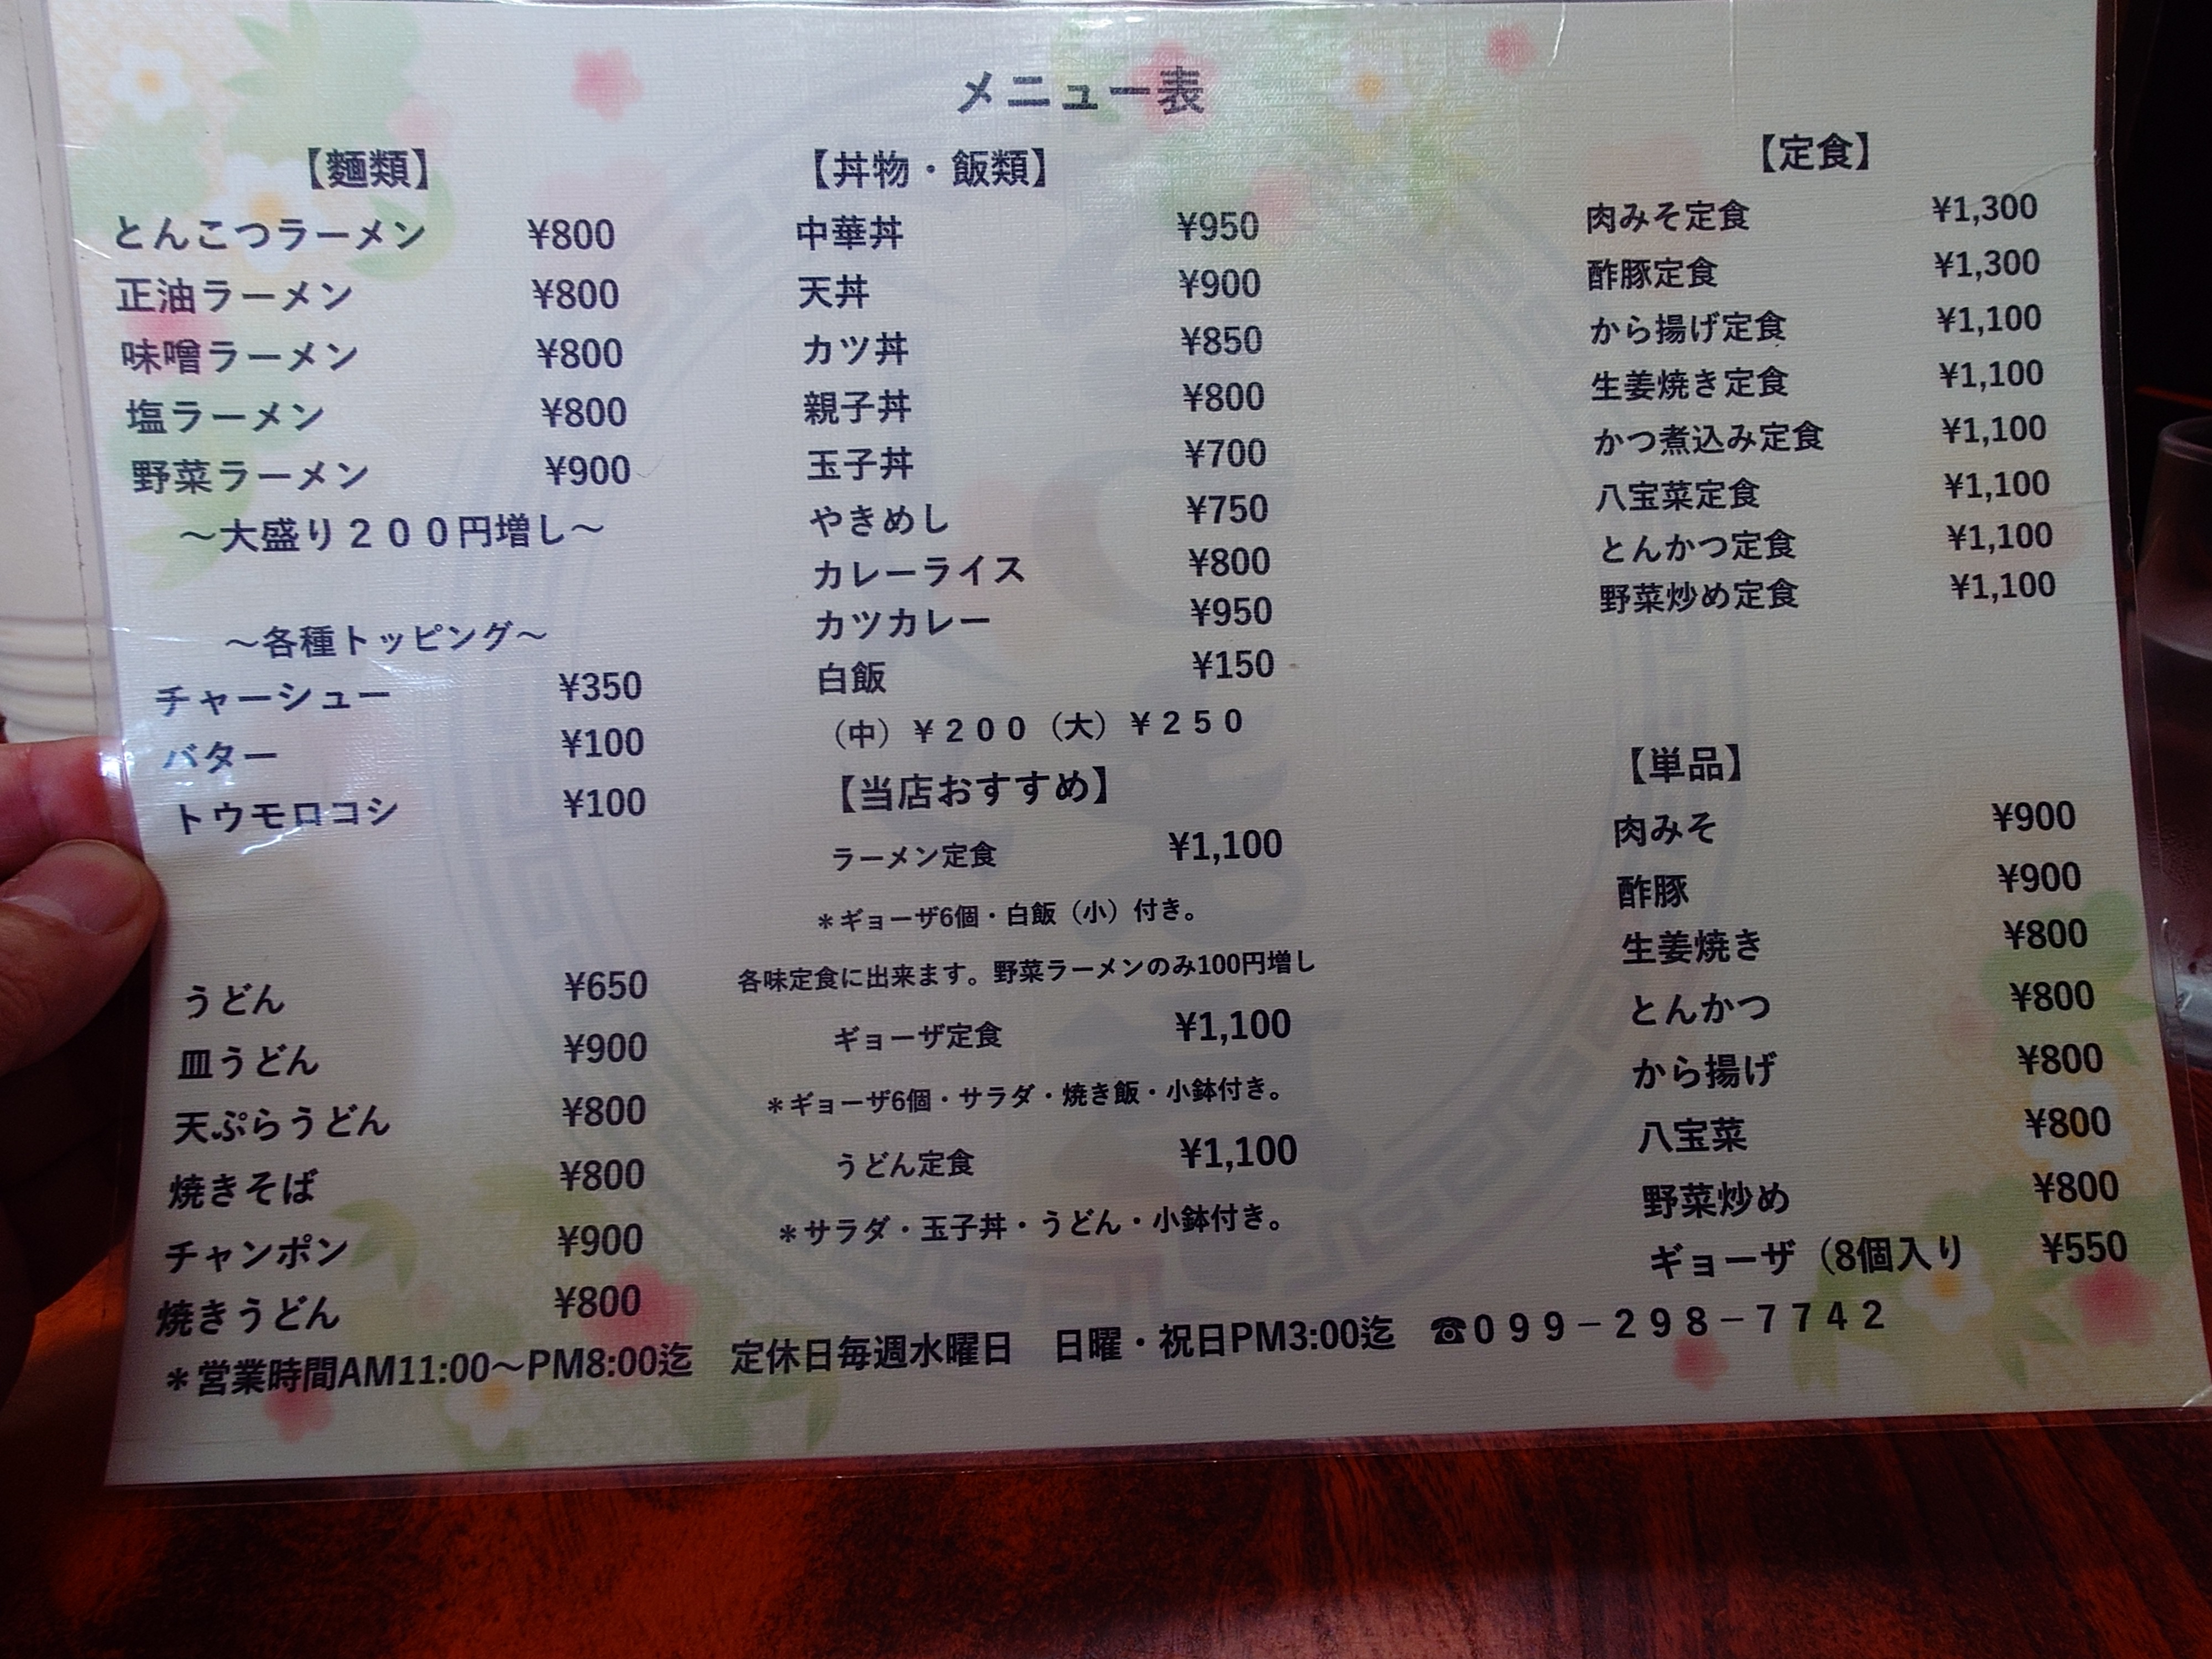 メニュー表
【麵類】
とんこつラーメン ¥800
正油ラーメン ¥800
味噌ラーメン ¥800
塩ラーメン ¥800
野菜ラーメン ¥900
～大盛り２００円増し～
～各種トッピング～
チャーシュー ¥350
バター ¥100
トウモロコシ ¥100
うどん ¥650
皿うどん ¥900
天ぷらうどん ¥800
焼きそば ¥800
チャンポン ¥900
焼きうどん ¥800
【丼物・飯類】
中華丼 ¥950
天丼 ¥900
カツ丼 ¥850
親子丼 ¥800
玉子丼 ¥700
やきめし ¥750
カレーライス ¥800
カツカレー ¥950
白飯 ¥150
（中）￥２００（大）￥２５０
【当店おすすめ】
ラーメン定食 ¥1,100
＊ギョーザ6個・白飯（小）付き。
各味定食に出来ます。野菜ラーメンのみ100円増し
ギョーザ定食 ¥1,100
＊ギョーザ6個・サラダ・焼き飯・小鉢付き。
うどん定食 ¥1,100
＊サラダ・玉子丼・うどん・小鉢付き。
【定食】
肉みそ定食 ¥1,300
酢豚定食 ¥1,300
から揚げ定食 ¥1,100
生姜焼き定食 ¥1,100
かつ煮込み定食 ¥1,100
八宝菜定食 ¥1,100
とんかつ定食 ¥1,100
野菜炒め定食 ¥1,100
【単品】
肉みそ ¥900
酢豚 ¥900
生姜焼き ¥800
とんかつ ¥800
から揚げ ¥800
八宝菜 ¥800
野菜炒め ¥800
ギョーザ（8個入り ¥550
＊営業時間AM11:00～PM8:00迄　定休日毎週水曜日　日曜・祝日PM3:00迄　☎０９９－２９８－７７４２